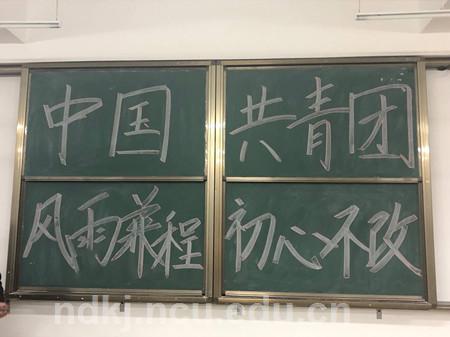 中国 共青团
风雨兼程 初心不改
ndkj.ncu.edu.cn